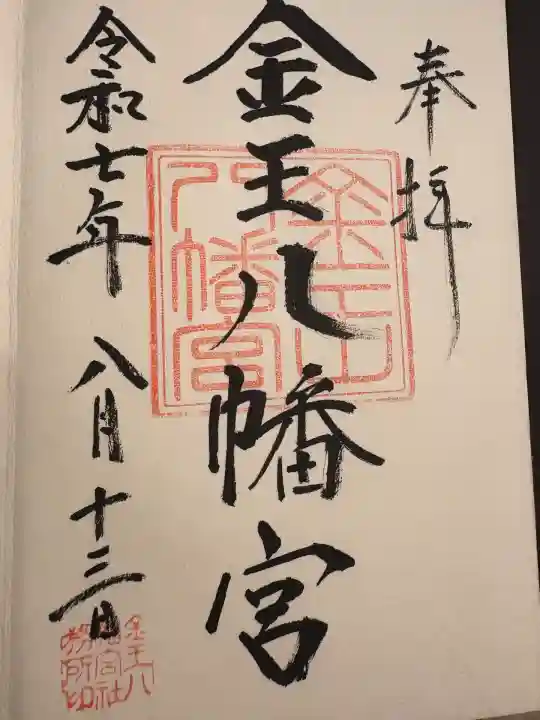 奉拝
金王八幡宮
金王八幡宮
令和七年 八月十三日
金王八
幡宮社
務所印